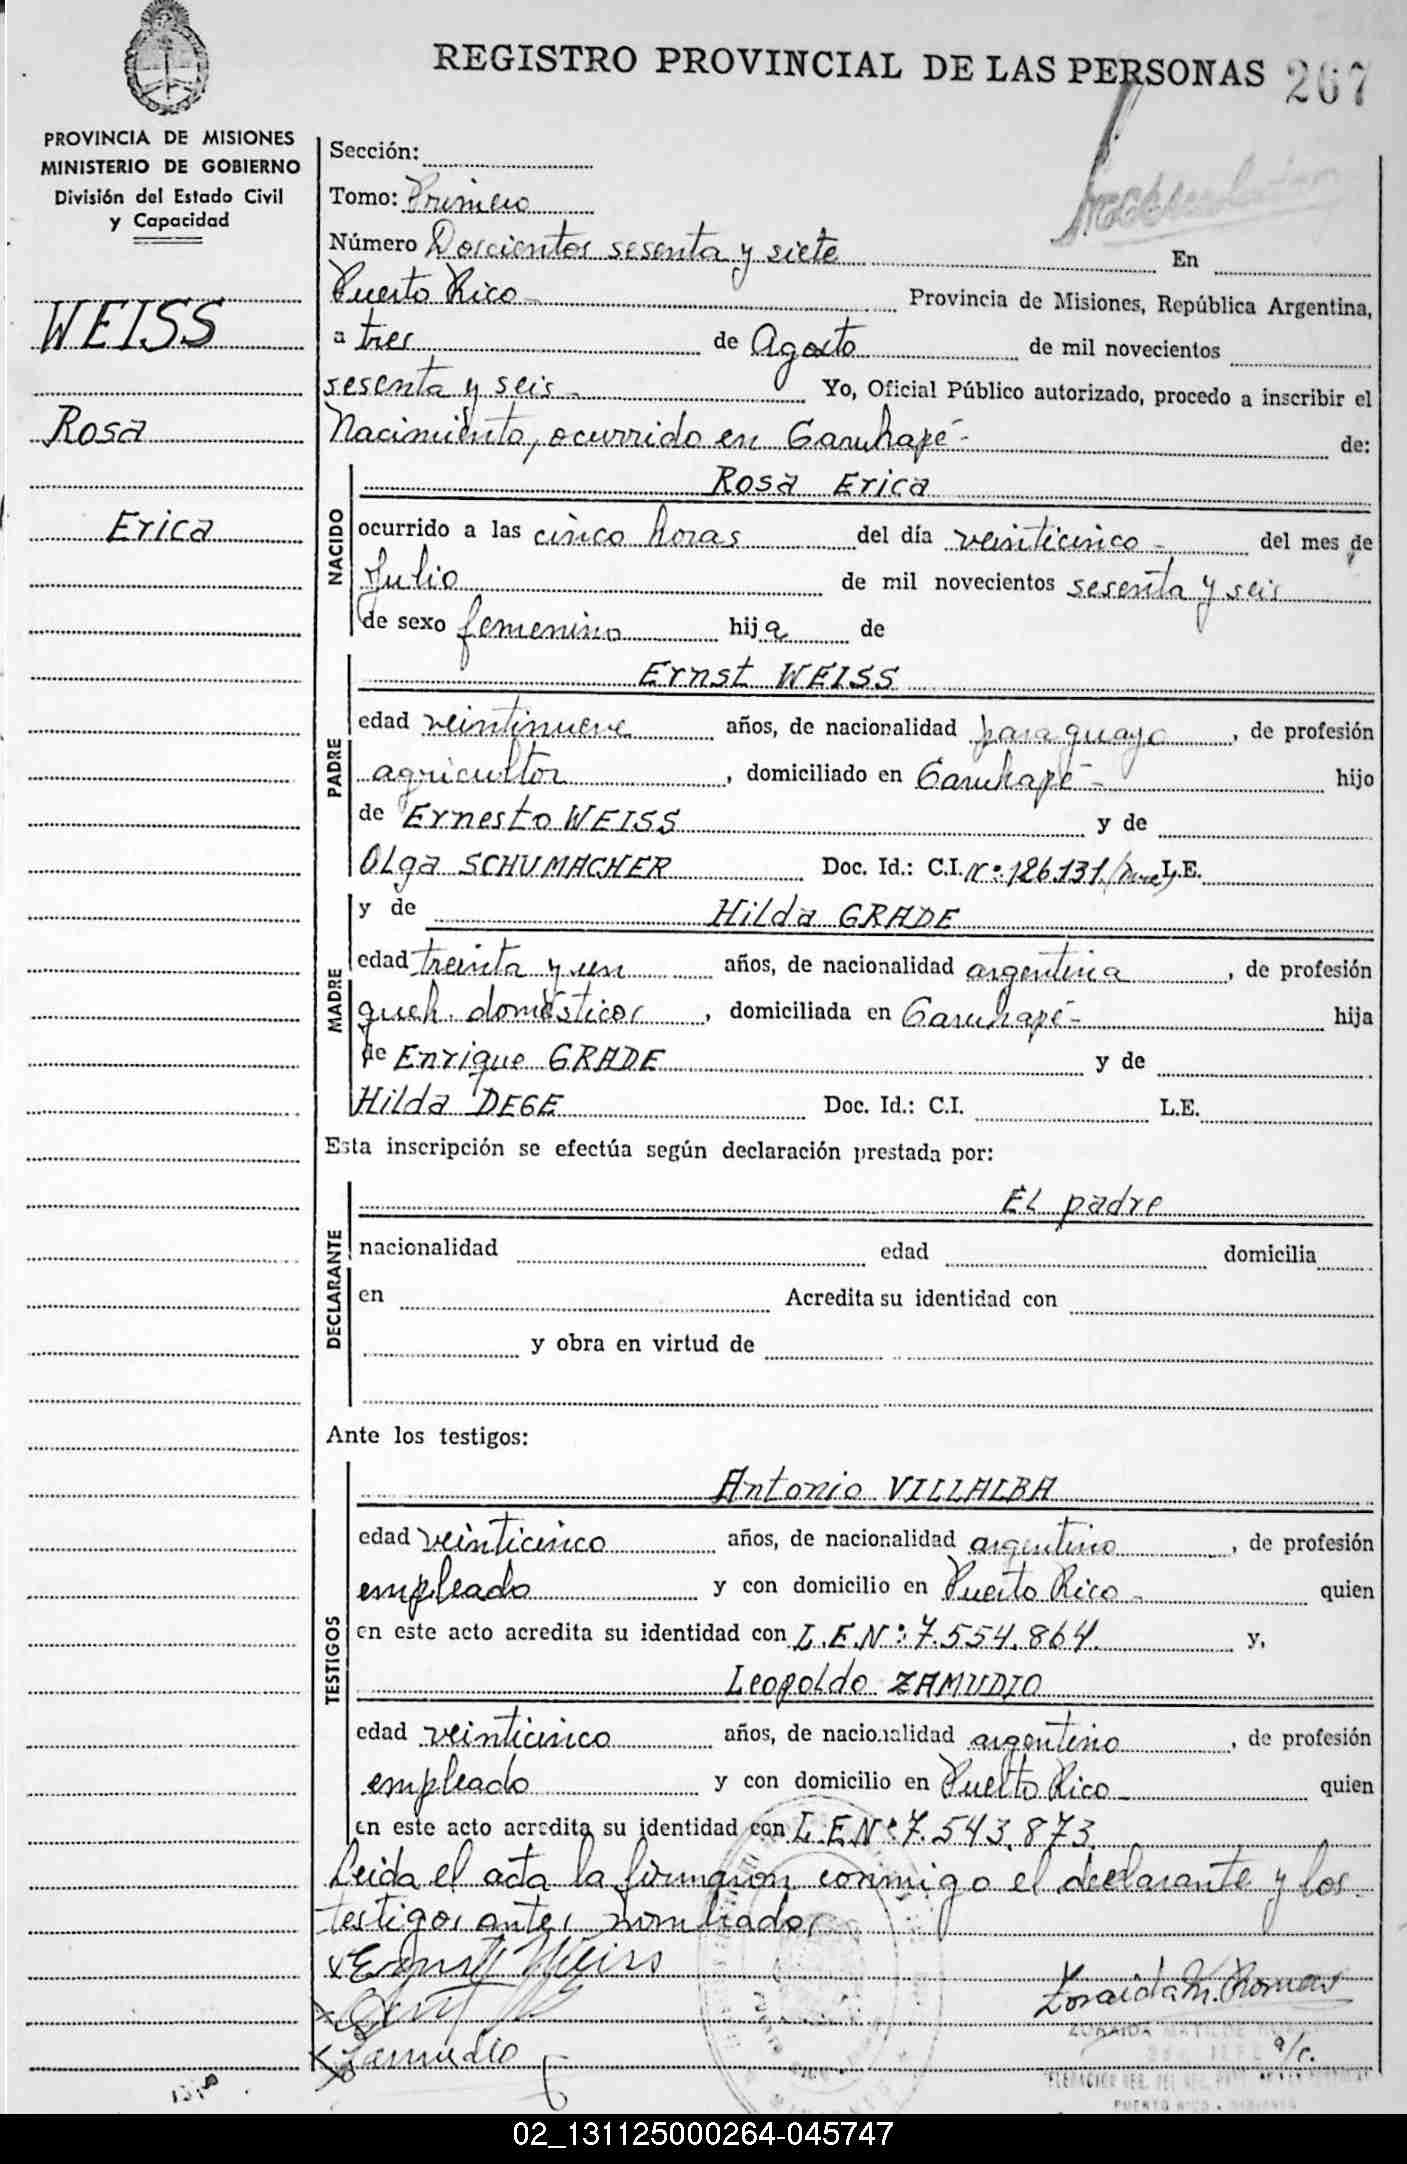 REGISTRO PROVINCIAL DE LAS PERSONAS 267
PROVINCIA DE MISIONES
MINISTERIO DE GOBIERNO
División del Estado Civil
y Capacidad
WEISS
Rosa
Erica
Sección:
Tomo: Primero
Número Doscientos sesenta y siete En
Puerto Rico - Provincia de Misiones, República Argentina,
a tres de Agosto de mil novecientos
sesenta y seis - Yo, Oficial Público autorizado, procedo a inscribir el
Nacimiento, ocurrido en Garuhapé - de:
NACIDO
Rosa Erica
ocurrido a las cinco horas del día veinticinco - del mes de
Julio de mil novecientos sesenta y seis
de sexo femenino hija de
PADRE
Ernst WEISS
edad veintinueve años, de nacionalidad paraguayo, de profesión
agricultor, domiciliado en Garuhapé - hijo
de Ernesto WEISS y de
Olga SCHUMACHER Doc. Id.: C.I. Nº: 126.131. L.E.
MADRE
y de Hilda GRADE
edad treinta y un años, de nacionalidad argentina, de profesión
queh. domésticos, domiciliada en Garuhapé - hija
de Enrique GRADE y de
Hilda DEGE Doc. Id.: C.I. L.E.
Esta inscripción se efectúa según declaración prestada por:
DECLARANTE
El padre
nacionalidad edad domicilia
en Acredita su identidad con
y obra en virtud de
Ante los testigos:
TESTIGOS
Antonio VILLALBA
edad veinticinco años, de nacionalidad argentino, de profesión
empleado y con domicilio en Puerto Rico - quien
en este acto acredita su identidad con L.E.Nº: 7.554.864. y,
Leopoldo ZAMUDIO
edad veinticinco años, de nacionalidad argentino, de profesión
empleado y con domicilio en Puerto Rico - quien
en este acto acredita su identidad con L.E.Nº: 7.543.873.
Leida el acta la firmaron conmigo el declarante y los
testigos antes nombrados
x Ernst Weiss
Zoraida M. Romero
Zamudio
a/c.
PUERTO RICO - MISIONES
02_131125000264-045747